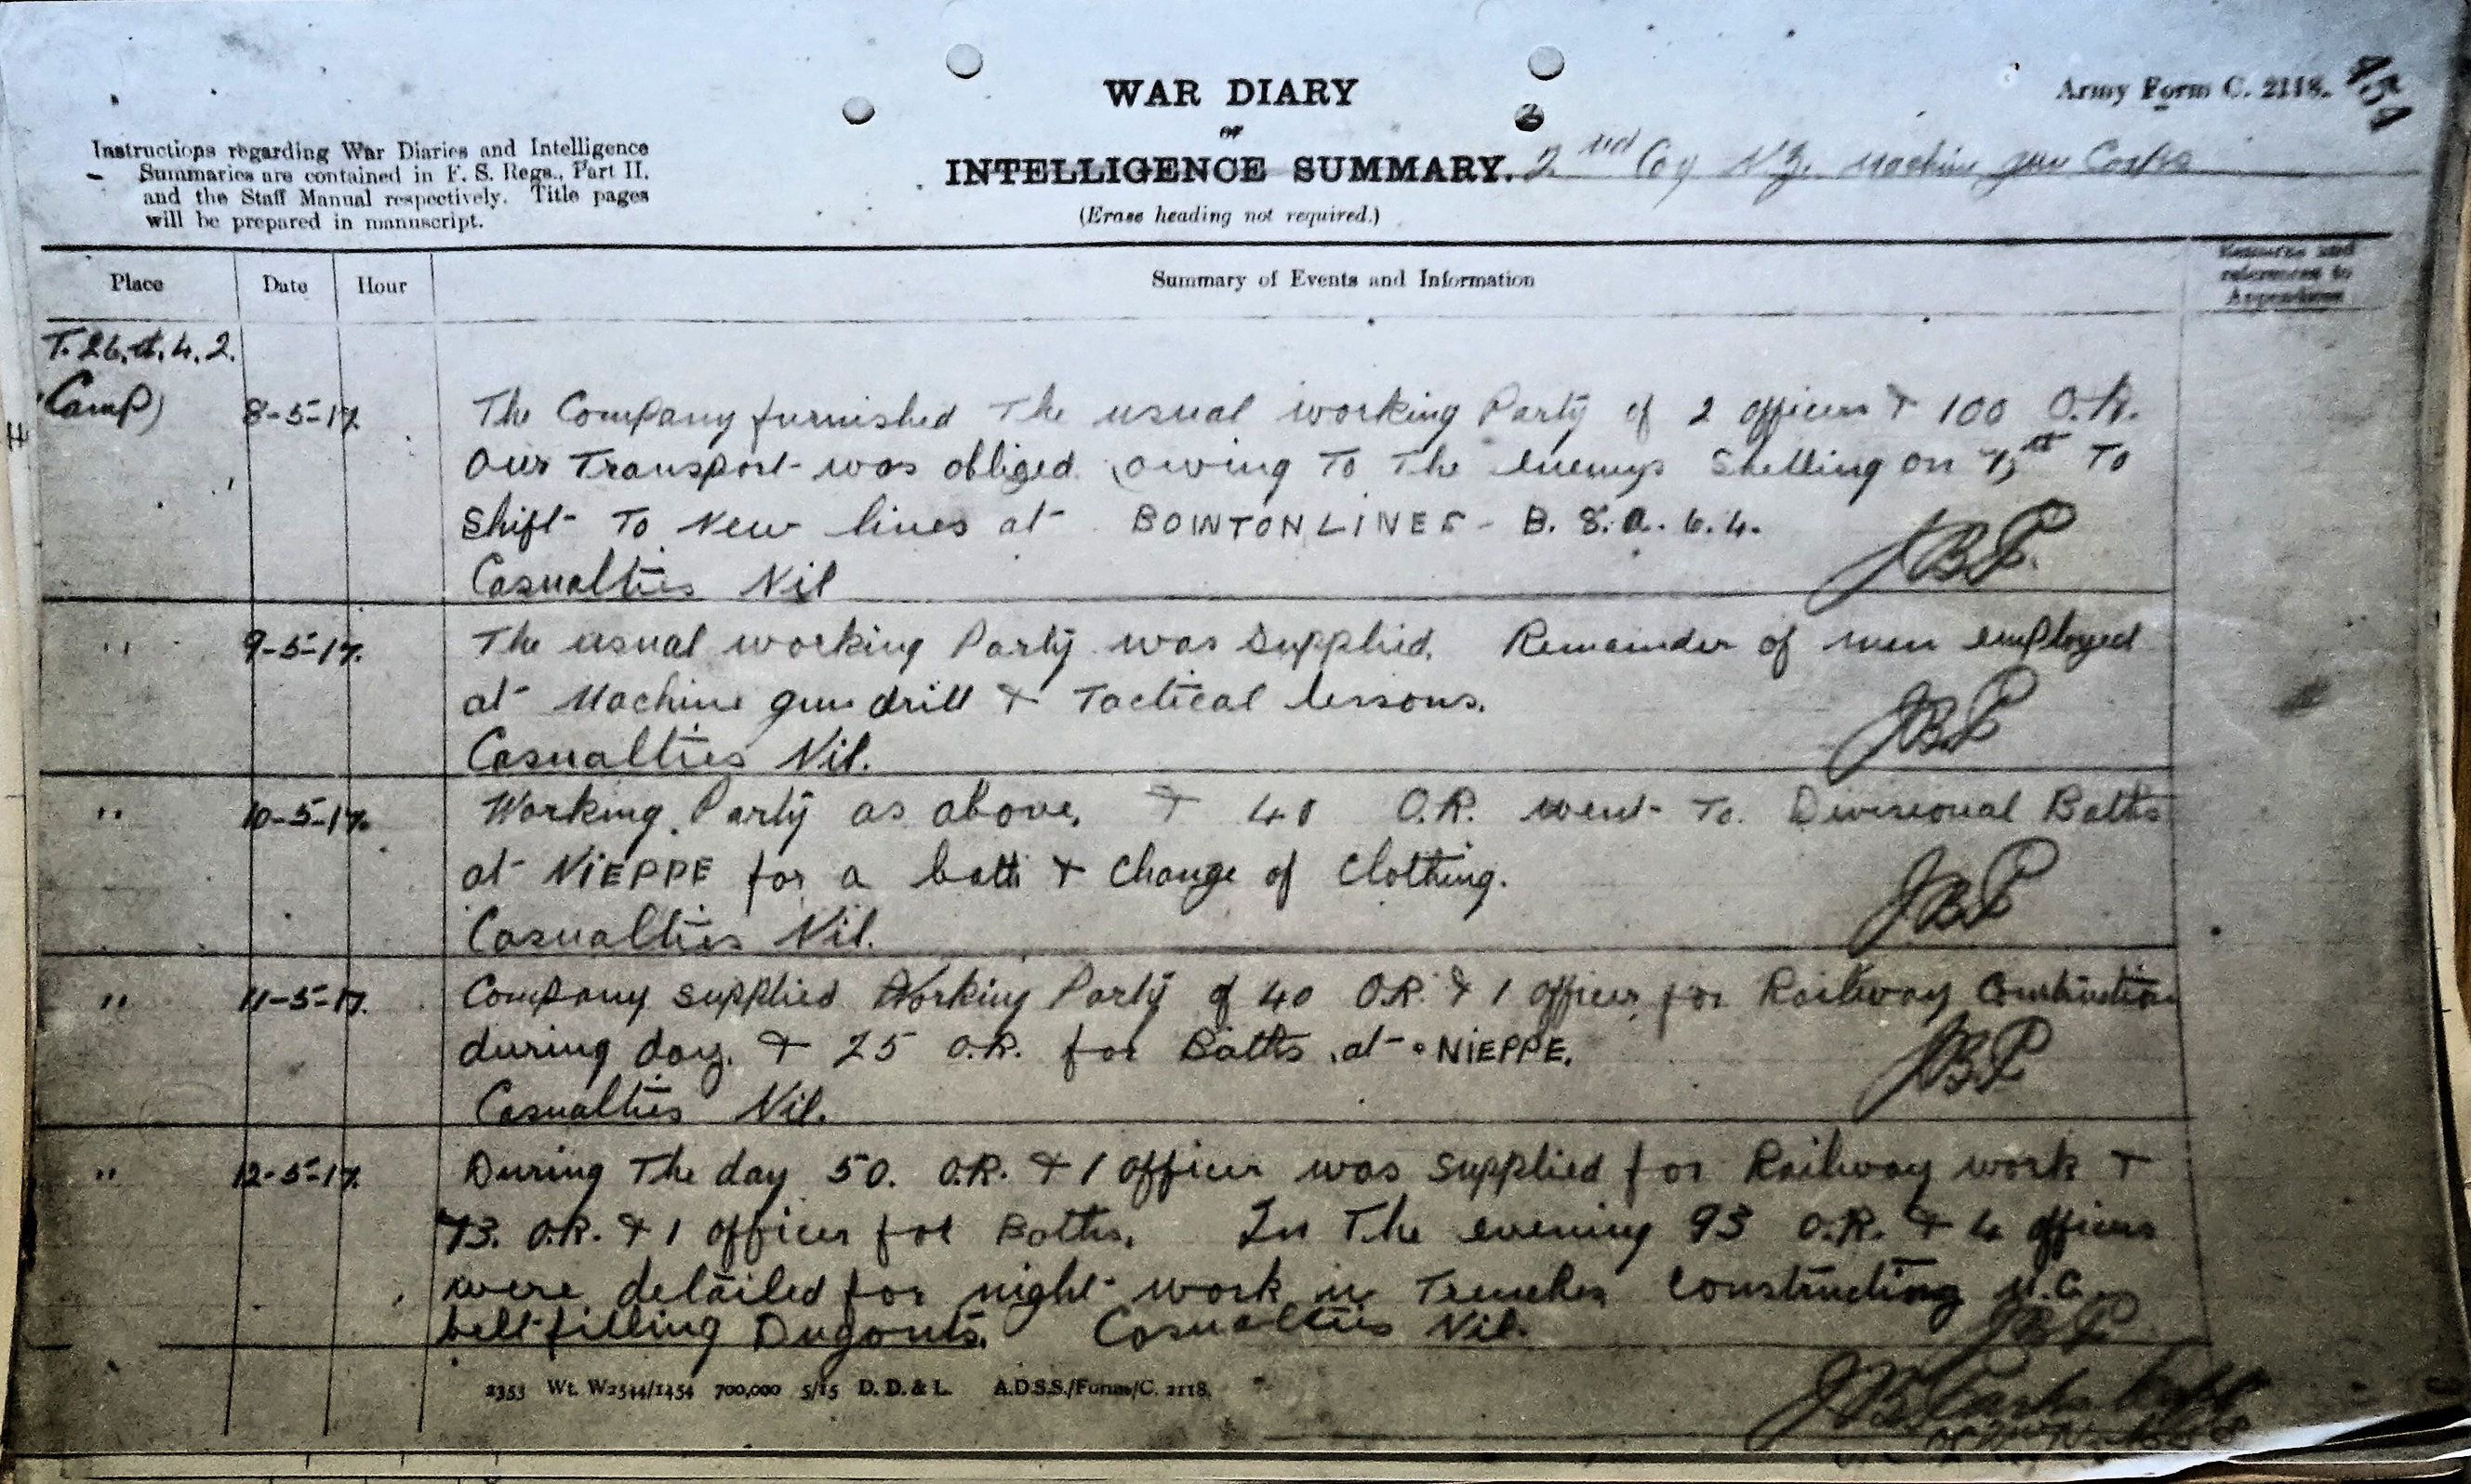 WAR DIARY
or
INTELLIGENCE SUMMARY.
(Erase heading not required.)
Army Form C. 2118.
2nd Coy N.Z. Machine Gun Corps
Instructions regarding War Diaries and Intelligence
Summaries are contained in F. S. Regs., Part II.
and the Staff Manual respectively. Title pages
will be prepared in manuscript.
Place Date Hour Summary of Events and Information Remarks and
references to
Appendices
T.26.d.4.2.
(Camp) 8-5-17. The Company furnished the usual working Party of 2 officers & 100 O.R.
Our Transport was obliged owing To The enemys Shelling on 7th To
Shift To New lines at BOINTON LINES - B. 8. a. 6.4.
Casualties Nil J.B.P.
" 9-5-17. The usual working Party was supplied. Remainder of men employed
at Machine gun drill & Tactical lessons.
Casualties Nil. JBP
" 10-5-17. Working Party as above, & 40 O.R. went To Divisional Baths
at NIEPPE for a bath & Change of Clothing.
Casualties Nil. JBP
" 11-5-17. Company supplied Working Party of 40 O.R. & 1 officer for Railway Construction
during day. & 25 O.R. for Baths at NIEPPE.
Casualties Nil. JBP
" 12-5-17. During The day 50. O.R. & 1 officer was supplied for Railway work &
73. O.R. & 1 officer for Baths. In The evening 93 O.R. & 4 officers
were detailed for night work in Trenches Constructing M.G.
belt filling Dugouts. Casualties Nil. JBP
2353 Wt. W2544/1454 700,000 5/15 D. D. & L. A.D.S.S./Forms/C. 2118.
J.B. Parks Capt